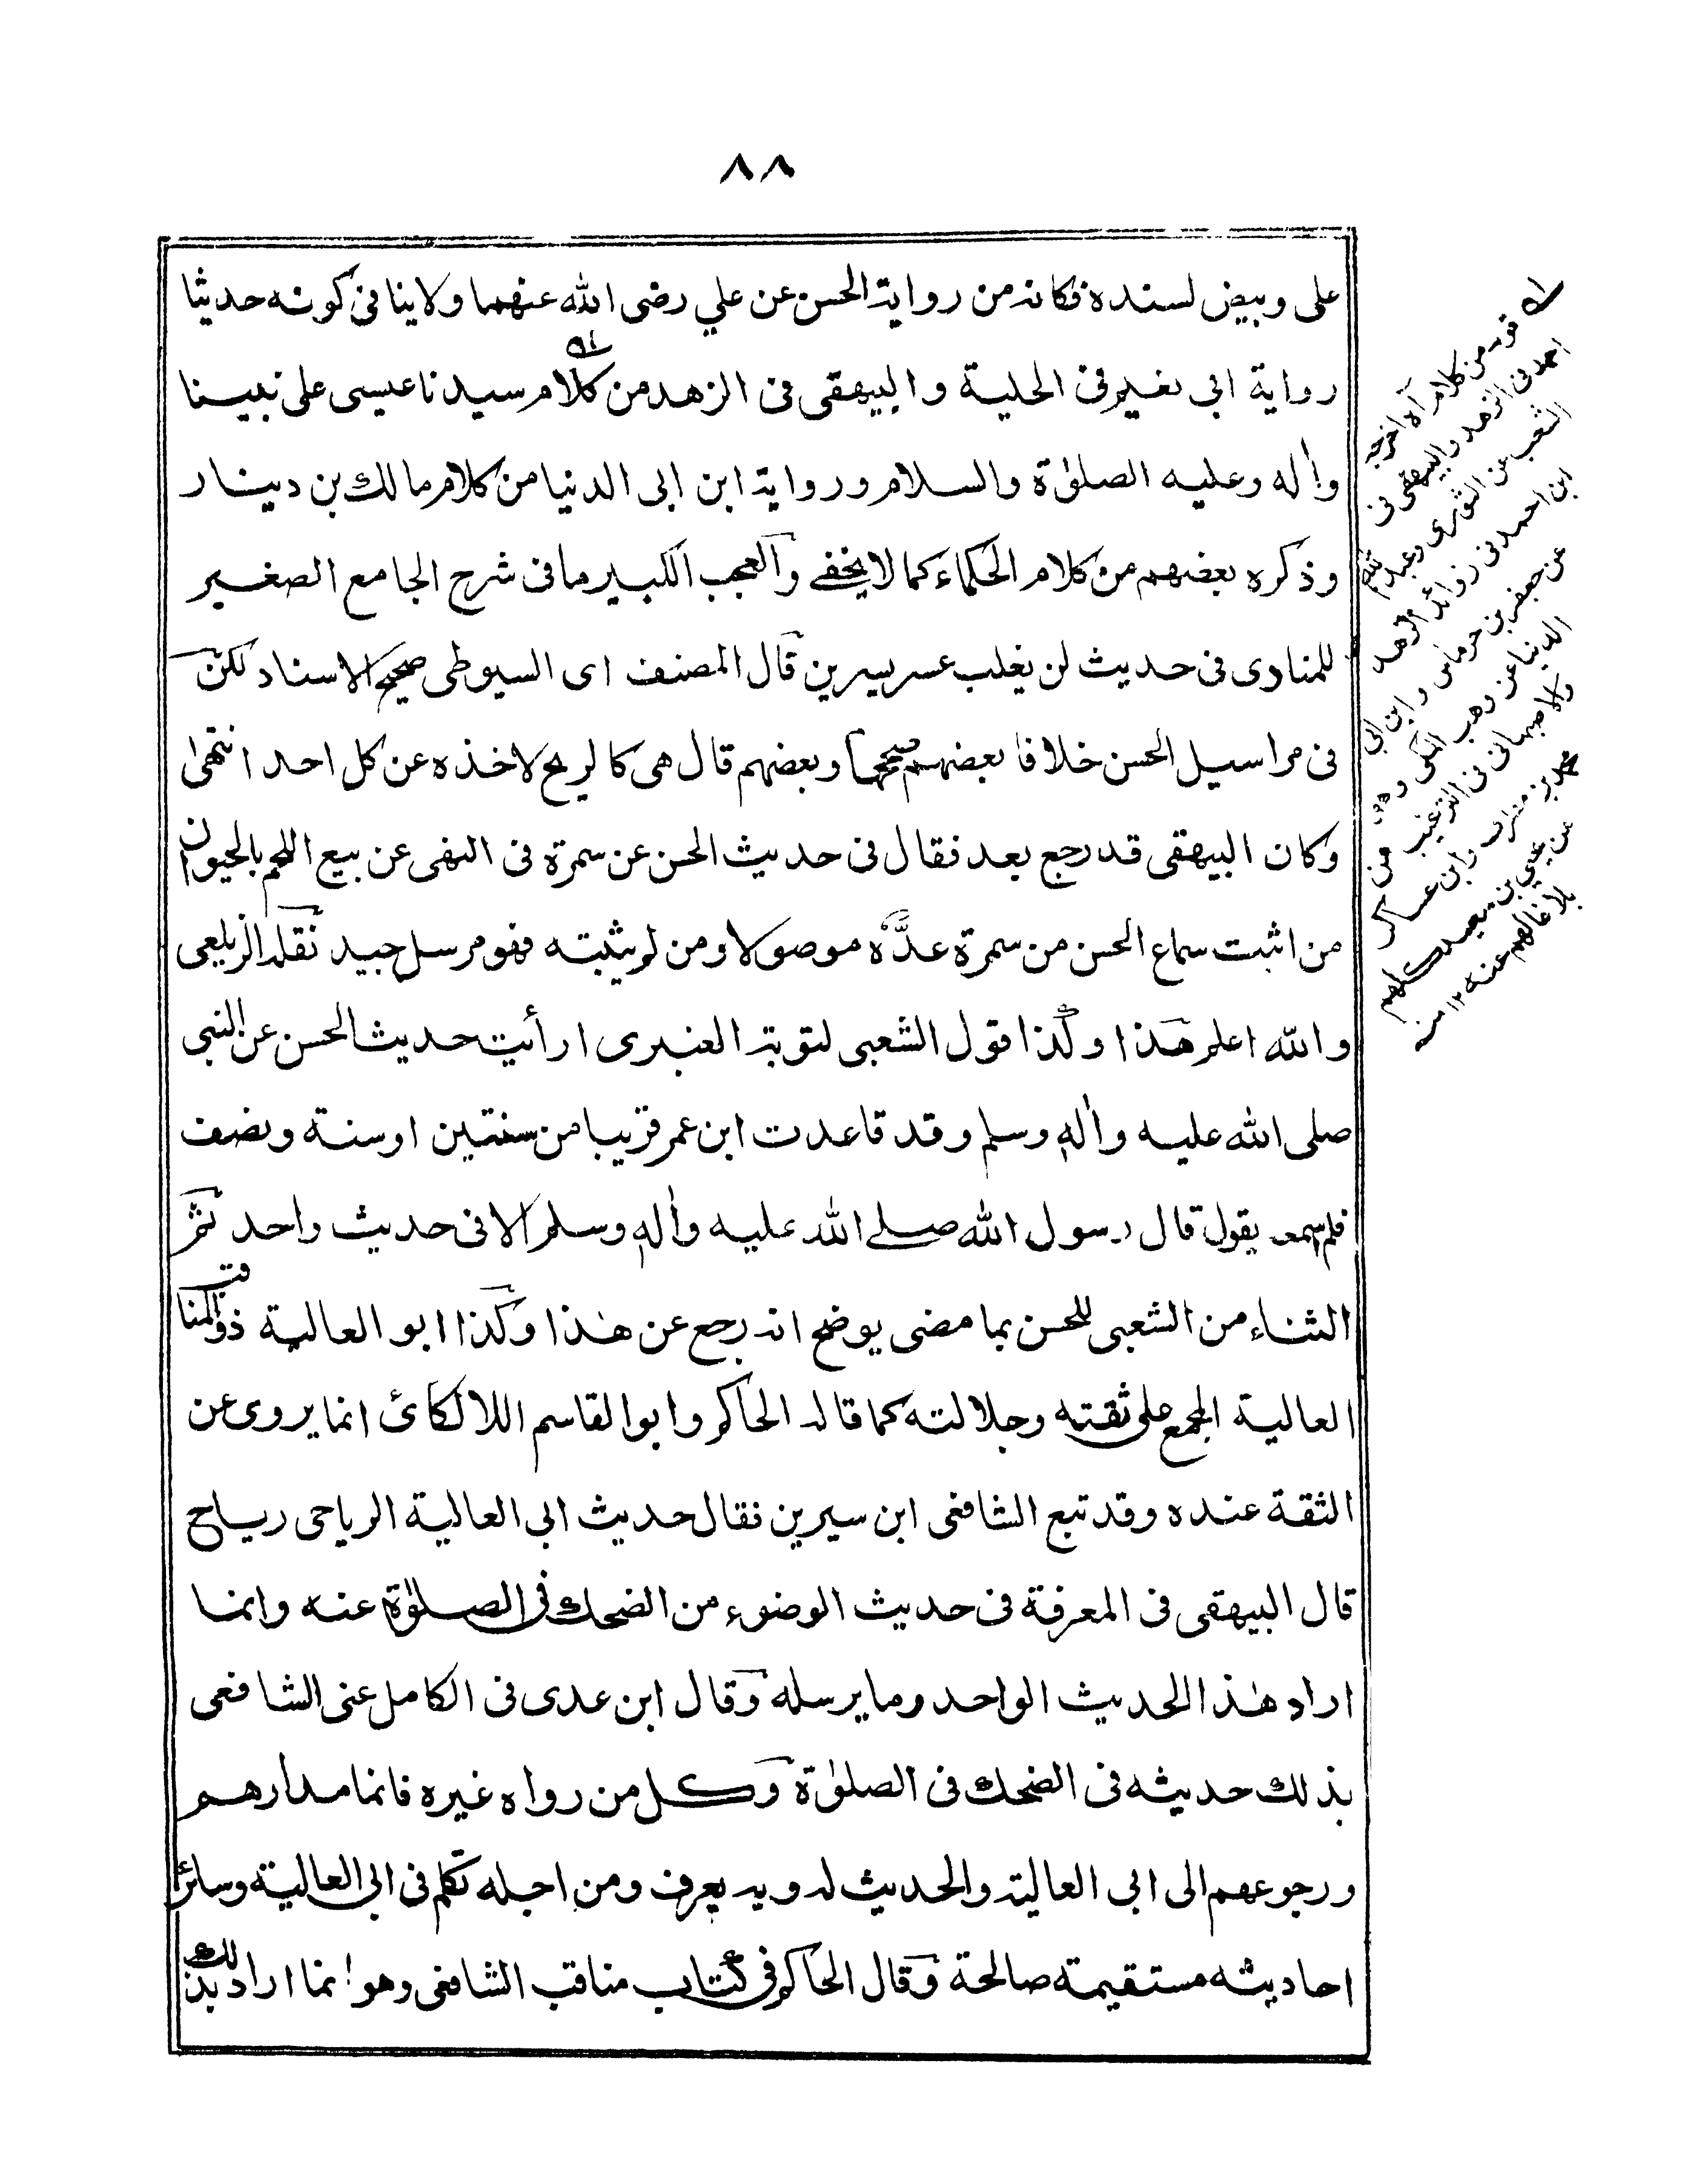 ٨٨
على وبيض لسنده فكانه من رواية الحسن عن علي رضى الله عنهما ولا ينافى كونه حديثا
رواية ابى نعيم فى الحلية والبيهقى فى الزهد من كلام سيدنا عيسى على نبينا
واٰله وعليه الصلوٰة والسلام ورواية ابن ابى الدنيا من كلام مالك بن دينار
وذكره بعضهم من كلام الحكماء كما لا يخفے والعجب الكبير ما فى شرح الجامع الصغير
للمناوى فى حديث لن يغلب عسر يسرين قال المصنف اى السيوطى صحيح الاسناد لكن
فى مراسيل الحسن خلافا بعضهم صححها وبعضهم قال هى كالريح لاخذه عن كل احد انتهىٰ
وكان البيهقى قد رجع بعد فقال فى حديث الحسن عن سمرة فى النهى عن بيع اللحم بالحيوان
من اثبت سماع الحسن من سمرة عدَّه موصولا ومن لم يثبته فهو مرسل جيد نقله الزيلعى
والله اعلم هذا وكذا قول الشعبى لتوبة العنبرى ارأيت حديث الحسن عن النبى
صلى الله عليه واٰله وسلم وقد قاعدت ابن عمر قريبا من سنتين اوسنة ونصف
فلم اسمعه يقول قال رسول الله صلے الله عليه واٰله وسلم الا فى حديث واحد ثم
الثناء من الشعبى للحسن بما مضى يوضح انه رجع عن هٰذا وكذا ابو العالية ذو المناقب
العالية المجمع على ثقته وجلالته كما قاله الحاكم وابو القاسم اللالكائ انما يروى عن
الثقة عنده وقد تبع الشافعى ابن سيرين فقال حديث ابى العالية الرياحى رياح
قال البيهقى فى المعرفة فى حديث الوضوء من الضحك فى الصلوٰة عنه وانما
اراد هٰذا الحديث الواحد وما يرسله وقال ابن عدى فى الكامل عنى الشافعى
بذلك حديثه فى الضحك فى الصلوٰة وكل من رواه غيره فانما مدارهم
ورجوعهم الى ابى العالية والحديث له وبه يعرف ومن اجله تكلم فى ابى العالية وسائر
احاديثه مستقيمة صالحة وقال الحاكم فى كتاب مناقب الشافعى وهو انما اراد بذلك
ـه قوله من كلام آه اخرجه
احمد فى الزهد والبيهقى فى
الشعب عن الثورى وعبد الله
ابن احمد فى زوائد الزهد
عن جعفر بن حرماس وابن ابى
الدنيا عن وهب المكى
والاصبهانى فى الترغيب من
محمد بن وابن عساكر
عن يحيى بن سعيد كلهم
بلاغا لهم عنه ١٢ منه